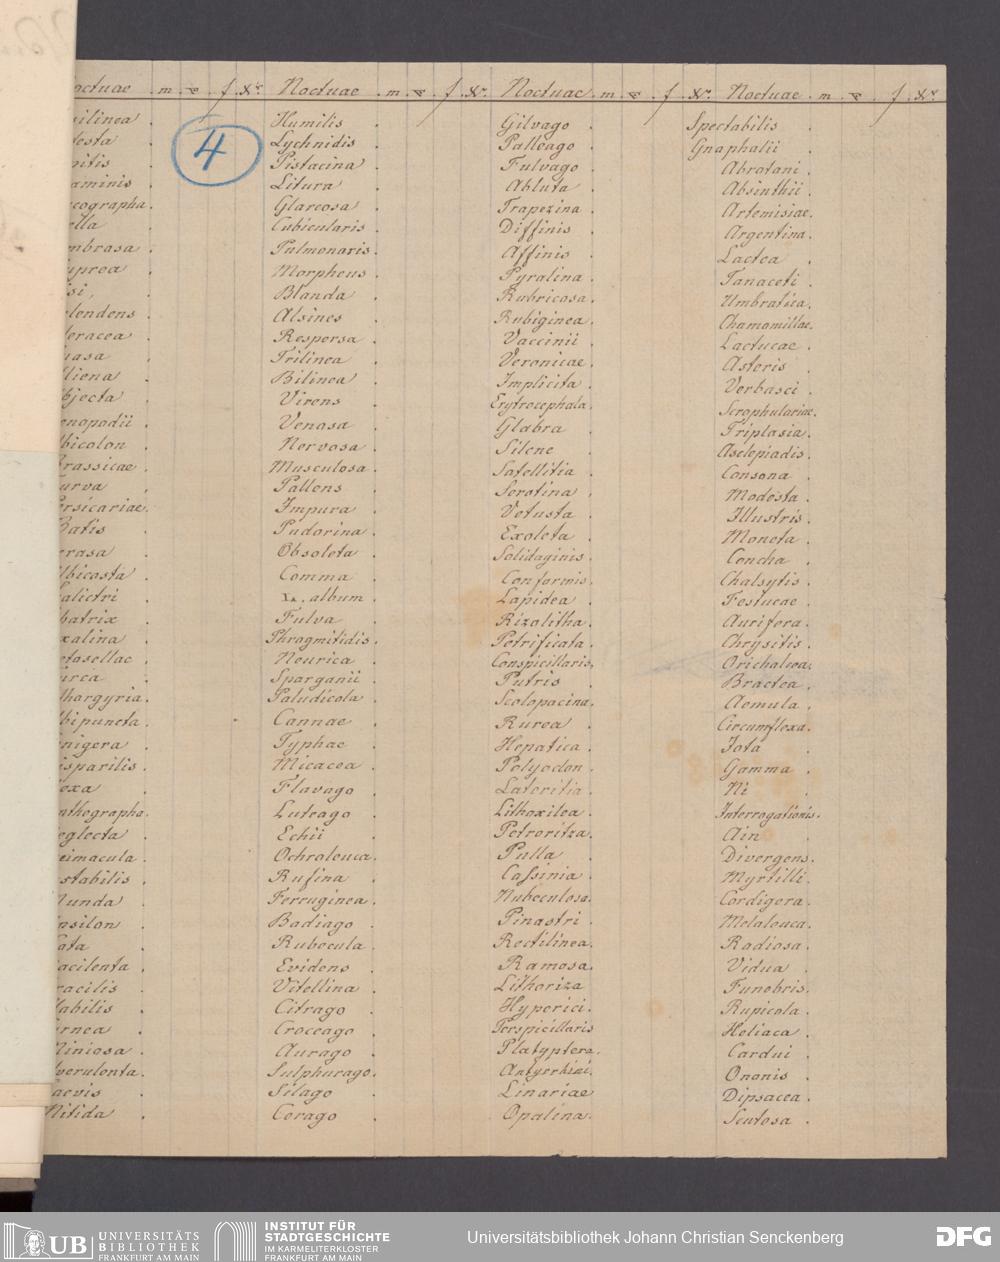 Noctuae . m . f . Nr. Noctuae . m . f . Nr. Noctuae . m . f . Nr. Noctuae . m . f . Nr.
4
ilinea .
esta .
aminis .
cographa .
ella .
mbrosa .
uprea .
isi, .
lendens .
leracea .
uasa .
liena .
bjecta .
enopodii .
bicolon .
rassicae .
urva .
ersicariae .
Batis .
erasa .
lbicosta .
alictri .
batrix .
xalina .
etasellae .
irca .
thargyria .
bipuncta .
nigera .
isparilis .
exa .
nthographa .
eglecta .
eimacula .
stabilis .
unda .
nsilon .
ata .
acilenta .
racilis .
tabilis .
arnea .
Miniosa .
verulenta .
aevis .
Nitida .
Humilis .
Lychnidis .
Pistacina .
Litura .
Glareosa .
Cubicularis .
Pulmonaris .
Morpheus .
Blanda .
Alsines .
Respersa .
Trilinea .
Bilinea .
Virens .
Venosa .
Nervosa .
Musculosa .
Pallens .
Impura .
Pudorina .
Obsoleta .
Comma .
L. album .
Fulva .
Phragmitidis .
Neurica .
Sparganii .
Paludicola .
Cannae .
Typhae .
Micacea .
Flavago .
Luteago .
Echii .
Ochroleuca .
Rufina .
Ferruginea .
Badiago .
Rubecula .
Evidens .
Vitellina .
Citrago .
Croceago .
Aurago .
Sulphurago .
Silago .
Cerago .
Gilvago .
Palleago .
Fulvago .
Abluta .
Trapezina .
Diffinis .
Affinis .
Pyralina .
Rubricosa .
Rubiginea .
Vaccinii .
Veronicae .
Implicita .
Erytrocephala .
Glabra .
Silene .
Satellitia .
Serotina .
Vetusta .
Exoleta .
Solidaginis .
Conformis .
Lapidea .
Rizolitha .
Petrificata .
Conspicillaris .
Putris .
Scolopacina .
Rurea .
Hepatica .
Polyodon .
Lateritia .
Lithoxilea .
Petroritza .
Pulla .
Cassinia .
Nubeculosa .
Pinastri .
Rectilinea .
Ramosa .
Lithoriza
Hyperici .
Perspicillaris
Platyptera .
Antyrrhini .
Linariae
Opalina .
Spectabilis .
Gnaphalii .
Abrotani .
Absinthii .
Artemisiae .
Argentina .
Lactea .
Tanaceti .
Umbratica .
Chamomillae .
Lactucae .
Asteris .
Verbasci .
Scrophulariae .
Triplasia .
Asclepiadis .
Consona .
Modesta .
Illustris .
Moneta .
Concha .
Chalsytis .
Festucae .
Aurifera .
Chrysitis .
Orichalcea .
Bractea .
Aemula .
Circumflexa .
Jota .
Gamma .
Ni .
Interrogationis .
Ain .
Divergens .
Myrtilli .
Cordigera .
Melaleuca .
Radiosa .
Vidua .
Funebris .
Rupicola .
Heliaca .
Cardui .
Ononis .
Dipsacea .
Scutosa .
UB UNIVERSITÄTS BIBLIOTHEK FRANKFURT AM MAIN
INSTITUT FÜR STADTGESCHICHTE IM KARMELITERKLOSTER FRANKFURT AM MAIN
Universitätsbibliothek Johann Christian Senckenberg
DFG